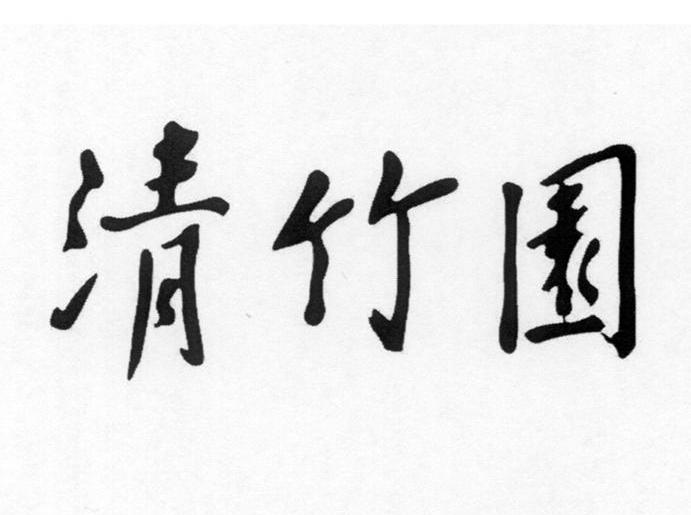 清竹園